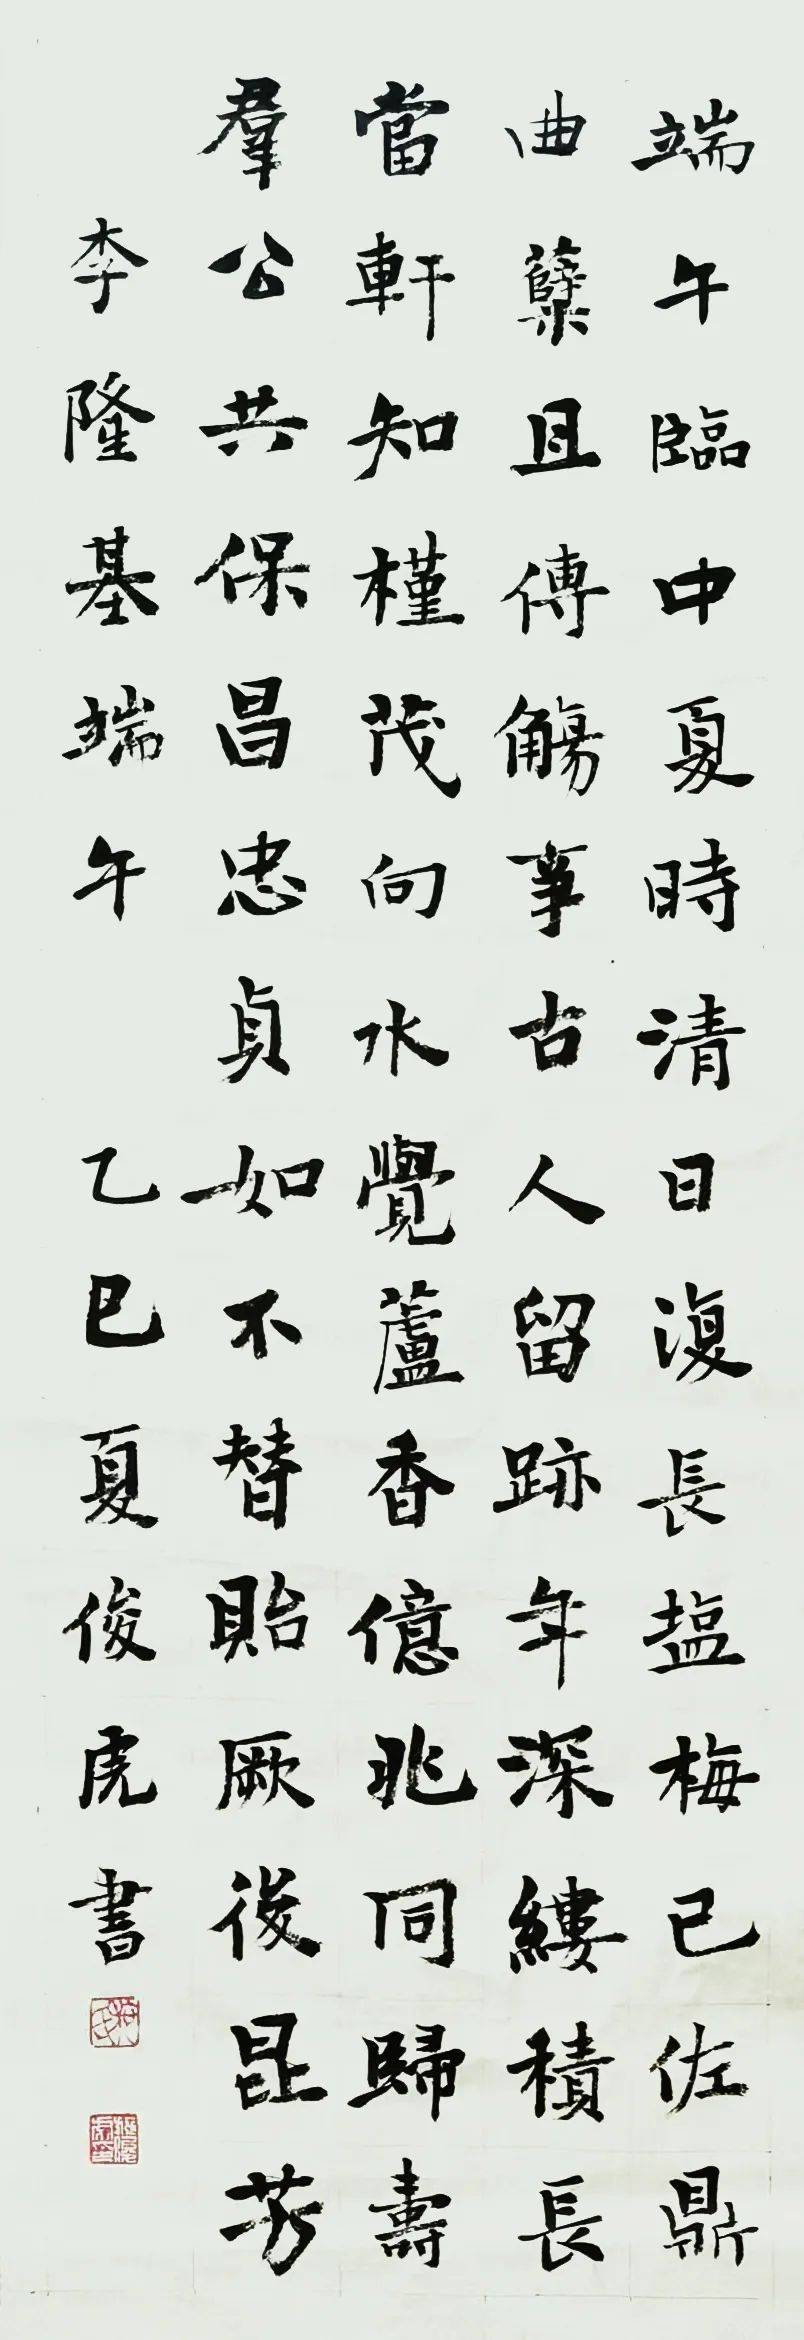 端午臨中夏時清日復長塩梅已佐鼎
曲糵且傳觴事古人留跡年深縷積長
當軒知槿茂向水覺蘆香億兆同歸壽
羣公共保昌忠貞如不替貽厥後昆芳
李隆基端午 乙巳夏俊虎書